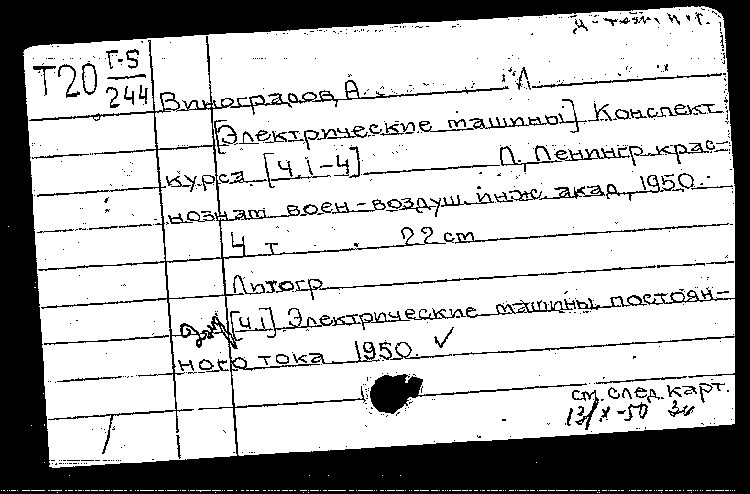 Т20 Г-5/244
Виноградов, А.
[Электрические машины] Конспект
курса [Ч. 1-4] Л., Ленингр. крас-
нознам. воен.-воздуш. инж. акад., 1950.
4 т. 22 cm
Литогр.
[Ч.1] Электрические машины постоян-
ного тока 1950. ✓
см. след. карт.
13/X-50